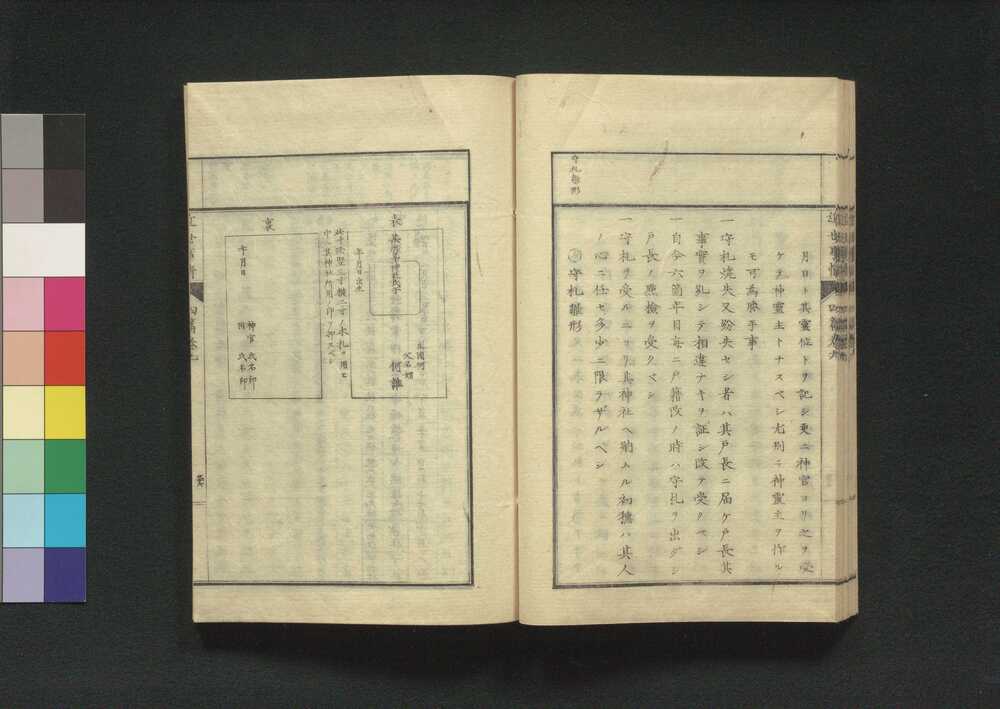 守札雛形
月日ト其霊位トヲ記シ更ニ神官ヨリ之ヲ受
ケヲ神霊主トナスベシ尤別ニ神霊主ヲ作ル
モ可為勝手事
一守札焼失又紛失セシ者ハ其戸長ニ届ケ戸長其
事実ヲ糺シテ相違ナキヲ証シ改テ受クベシ
一自今六箇年目毎ニ戸籍改ノ時ハ守札ヲ出ダシ
戸長ノ点検ヲ受クベシ
一守札ヲ受ルニヨリ其神社ヘ納ムル初穂ハ其人
ノ心ニ任セ多少ニ限ラザルベシ
守札雛形
表
某国某神社氏子
某国何
父名嫡
何誰
年月日出生
此寸法竪三寸横二寸ノ木札ヲ用ヒ
中ニ其神社所用ノ印ヲ押スベシ
裏
神官 氏名印
同 氏名印
年月日
四篇巻九